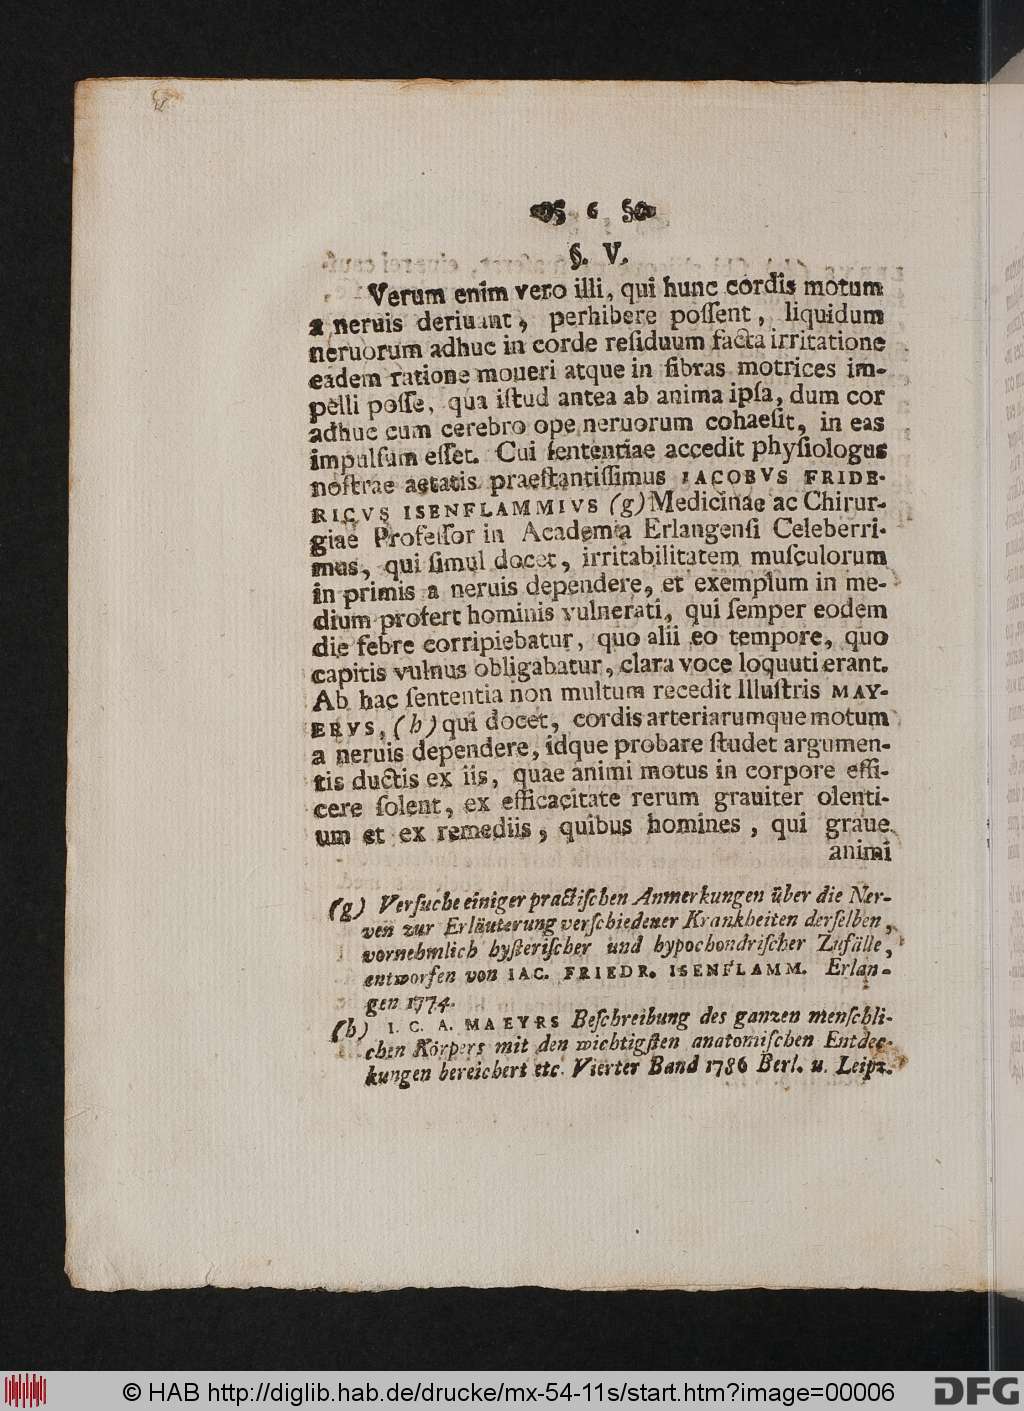 6
§. V.
Verum enim vero illi, qui hunc cordis motum
a neruis deriuant, perhibere poſſent, liquidum
neruorum adhuc in corde reſiduum facta irritatione
eadem ratione moueri atque in fibras motrices im-
pelli poſſe, qua iſtud antea ab anima ipſa, dum cor
adhuc cum cerebro ope neruorum cohaeſit, in eas
impulſum eſſet. Cui ſententiae accedit phyſiologus
noſtrae aetatis praeſtantiſſimus IACOBVS FRIDE-
RICVS ISENFLAMMIVS (g) Medicinae ac Chirur-
giae Profeſſor in Academia Erlangenſi Celeberri-
mus, qui ſimul docet, irritabilitatem muſculorum
in primis a neruis dependere, et exemplum in me-
dium profert hominis vulnerati, qui ſemper eodem
die febre corripiebatur, quo alii eo tempore, quo
capitis vulnus obligabatur, clara voce loquuti erant.
Ab hac ſententia non multum recedit Illuſtris MAY-
ERVS, (h) qui docet, cordis arteriarumque motum
a neruis dependere, idque probare ſtudet argumen-
tis ductis ex iis, quae animi motus in corpore effi-
cere ſolent, ex efficacitate rerum grauiter olenti-
um et ex remediis, quibus homines, qui graue
animi
(g) Verſuche einiger practiſchen Anmerkungen über die Ner-
ven zur Erläuterung verſchiedener Krankheiten derſelben,
vornehmlich hyſteriſcher und hypochondriſcher Zufälle,
entworfen von IAC. FRIEDR. ISENFLAMM. Erlan-
gen 1774.
(h) I. C. A. MAEYRS Beſchreibung des ganzen menſchli-
chen Körpers mit den wichtigſten anatomiſchen Entdec-
kungen bereichert etc. Vierter Band 1786 Berl. u. Leipz.
© HAB http://diglib.hab.de/drucke/mx-54-11s/start.htm?image=00006
DFG